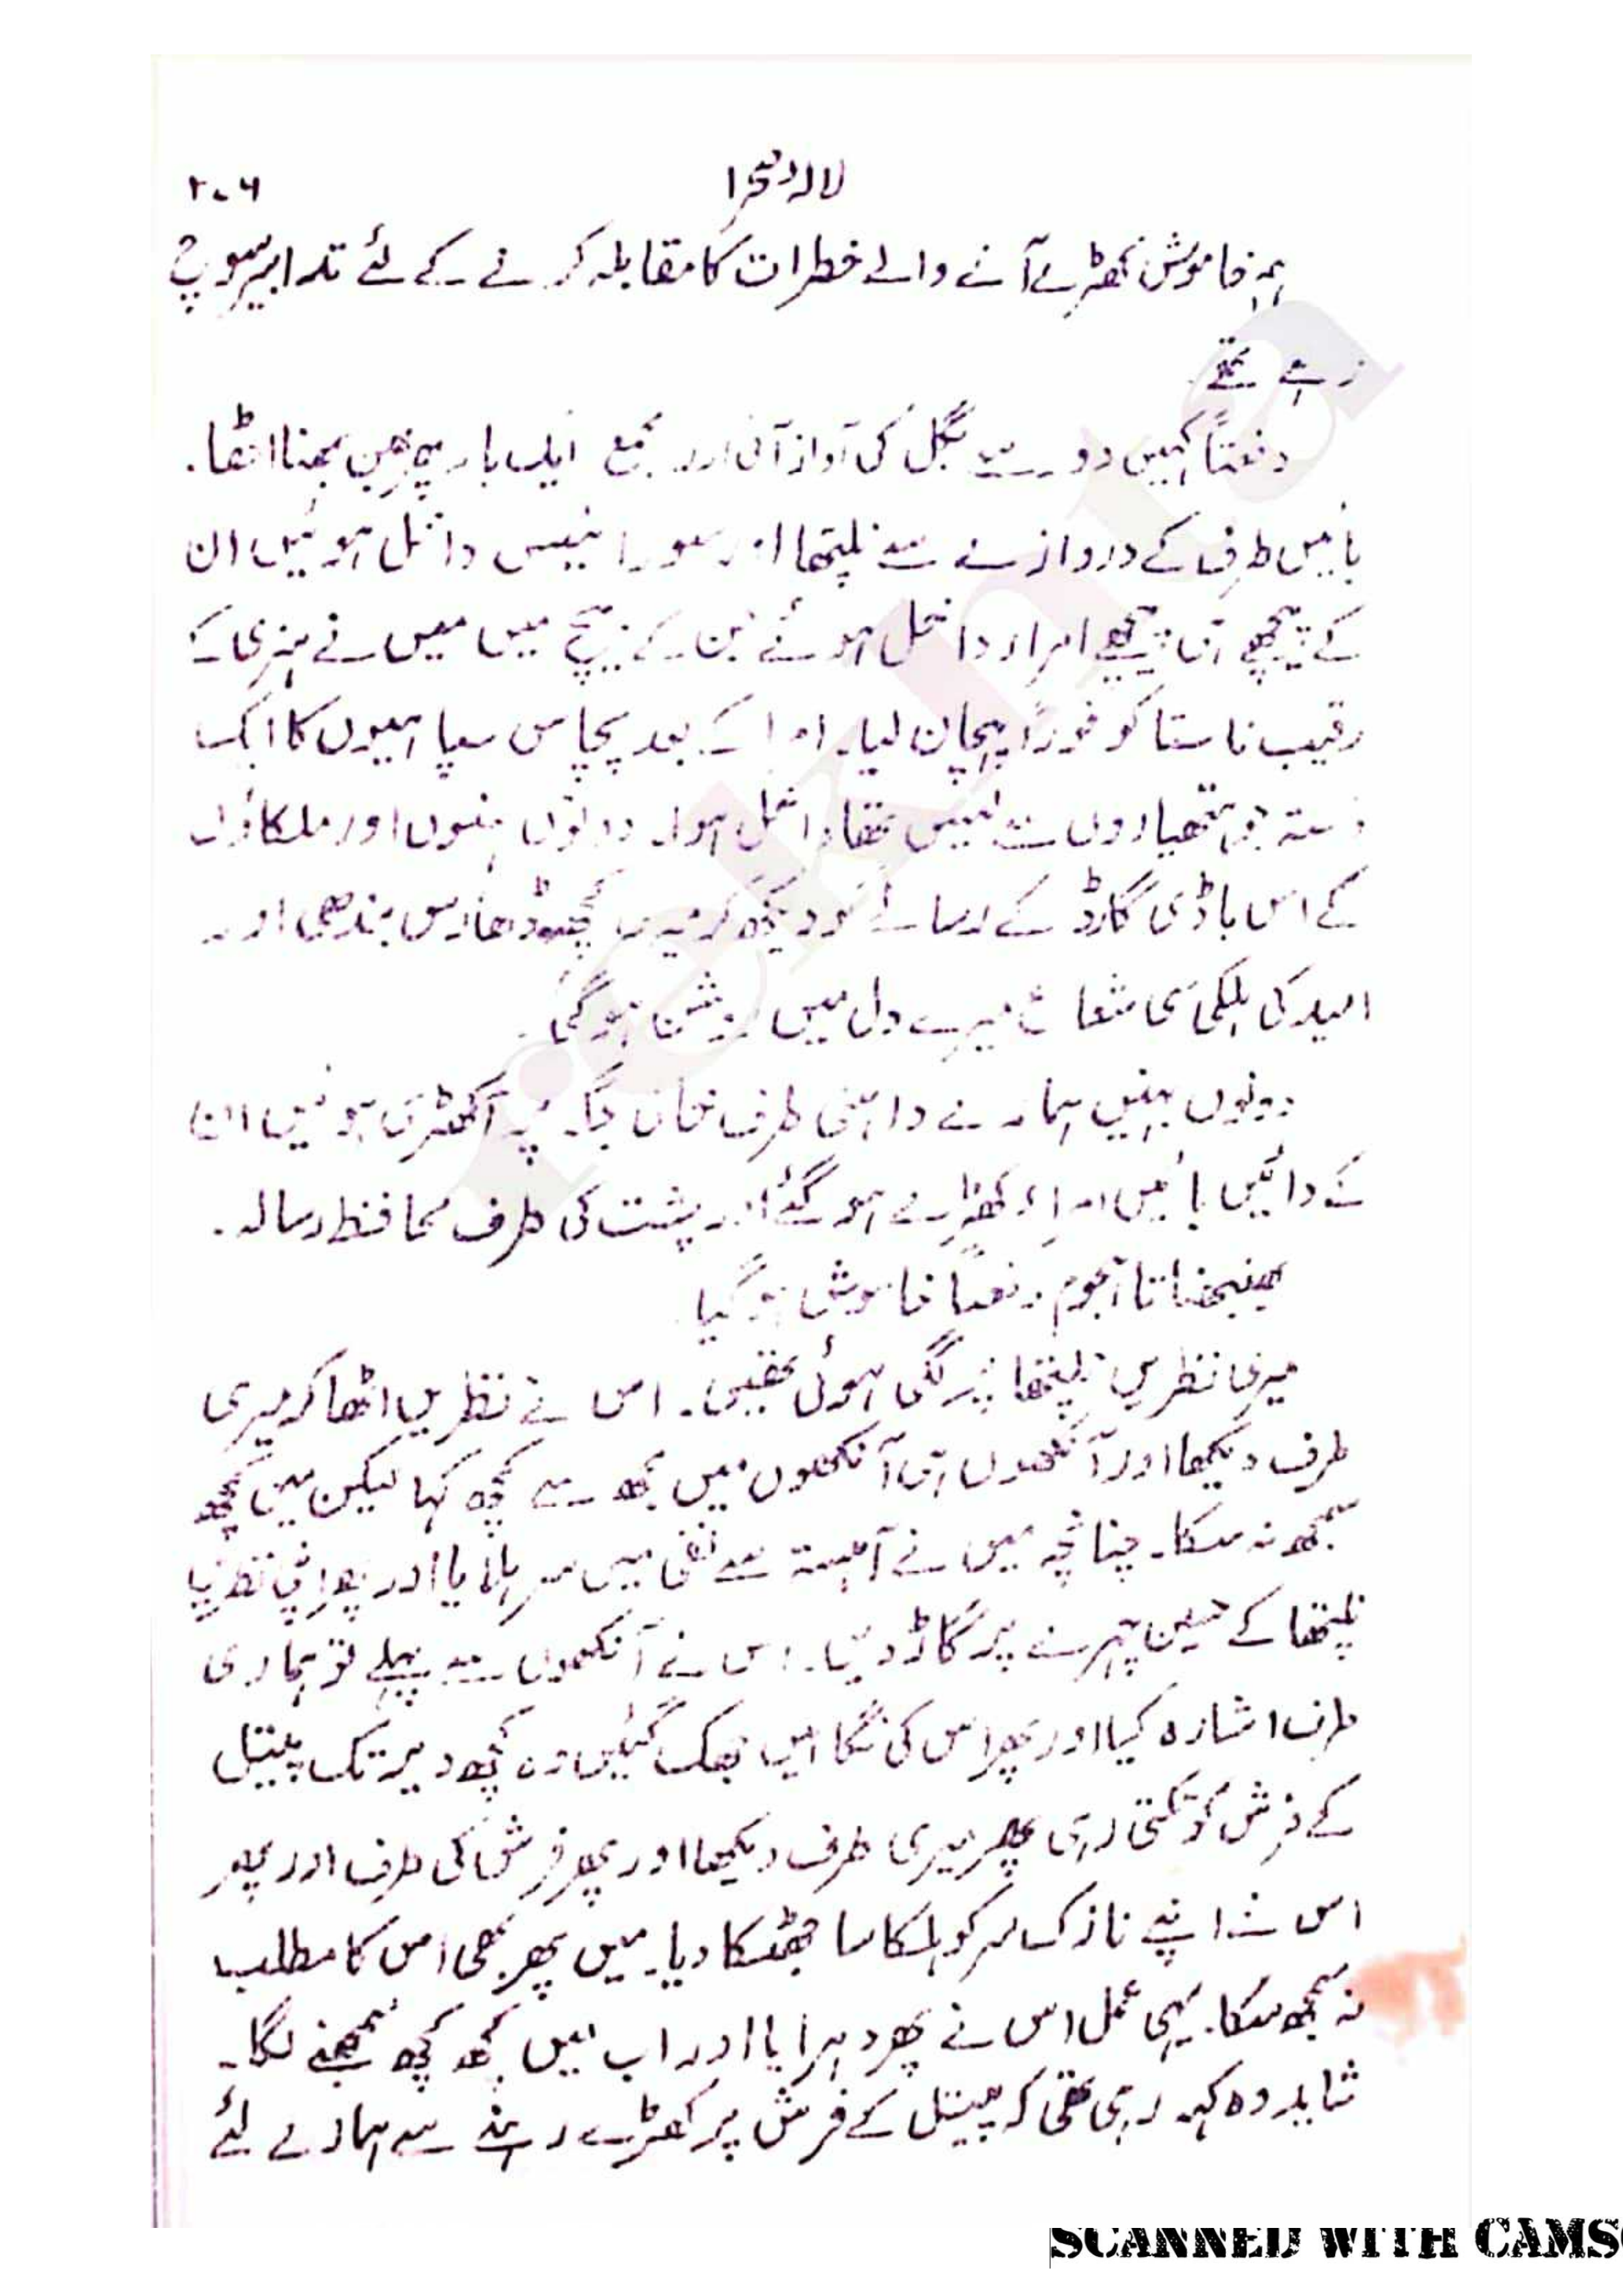 ۲۰۶ لالہ صحرا
ہم خاموش کھڑے آنے والے خطرات کا مقابلہ کرنے کے لئے تدابیر سوچ
رہے تھے
دفعتاً کہیں دور سے بگل کی آواز آئی اور مجمع ایک بار پھر بھن بھنا اٹھا۔
بائیں طرف کے دروازے سے نلپتھا اور سورائیس داخل ہوئیں ان
کے پیچھے ہی پیچھے امراء داخل ہوئے جن کے بیچ میں میں نے ہنری کے
رقیب ناستا کو فوراً پہچان لیا۔ امراء کے بعد پچاس سپاہیوں کا ایک
دستہ جو ہتھیاروں سے لیس تھا داخل ہوا۔ دونوں بہنوں اور ملکاؤں
کے اس باڈی گارڈ کے رسالے کو دیکھ کر میری کچھ ڈھارس بندھی اور
امید کی ہلکی سی شعاع میرے دل میں روشن ہو گئی۔
دونوں بہنیں ہمارے داہنی طرف خالی جگہ پہ آکھڑی ہوئیں ان
کے دائیں بائیں امراء کھڑے ہو گئے اور پشت کی طرف محافظ رسالہ۔
بھنبھناتا ہجوم دفعتاً خاموش ہو گیا
میری نظریں نلپتھا پر لگی ہوئی تھیں۔ اس نے نظریں اٹھا کر میری
طرف دیکھا اور آنکھوں ہی آنکھوں میں مجھ سے کچھ کہا لیکن میں کچھ
سمجھ نہ سکا۔ چنانچہ میں نے آہستہ سے نفی میں سر ہلایا اور پھر اپنی نظریں
نلپتھا کے حسین چہرے پر گاڑ دیں۔ اس نے آنکھوں سے پہلے تو ہماری
طرف اشارہ کیا اور پھر اس کی نگاہیں جھک گئیں وہ کچھ دیر تک پیتل
کے فرش کو تکتی رہی پھر میری طرف دیکھا اور پھر فرش کی طرف اور پھر
اس نے اپنے نازک سر کو ہلکا سا جھٹکا دیا۔ میں پھر بھی اس کا مطلب
نہ سمجھ سکا۔ یہی عمل اس نے پھر دہرایا اور اب میں کچھ کچھ سمجھنے لگا۔
شاید وہ کہہ رہی تھی کہ پیتل کے فرش پر کھڑے رہنے سے ہمارے لئے
rekhta
SCANNED WITH CAMS